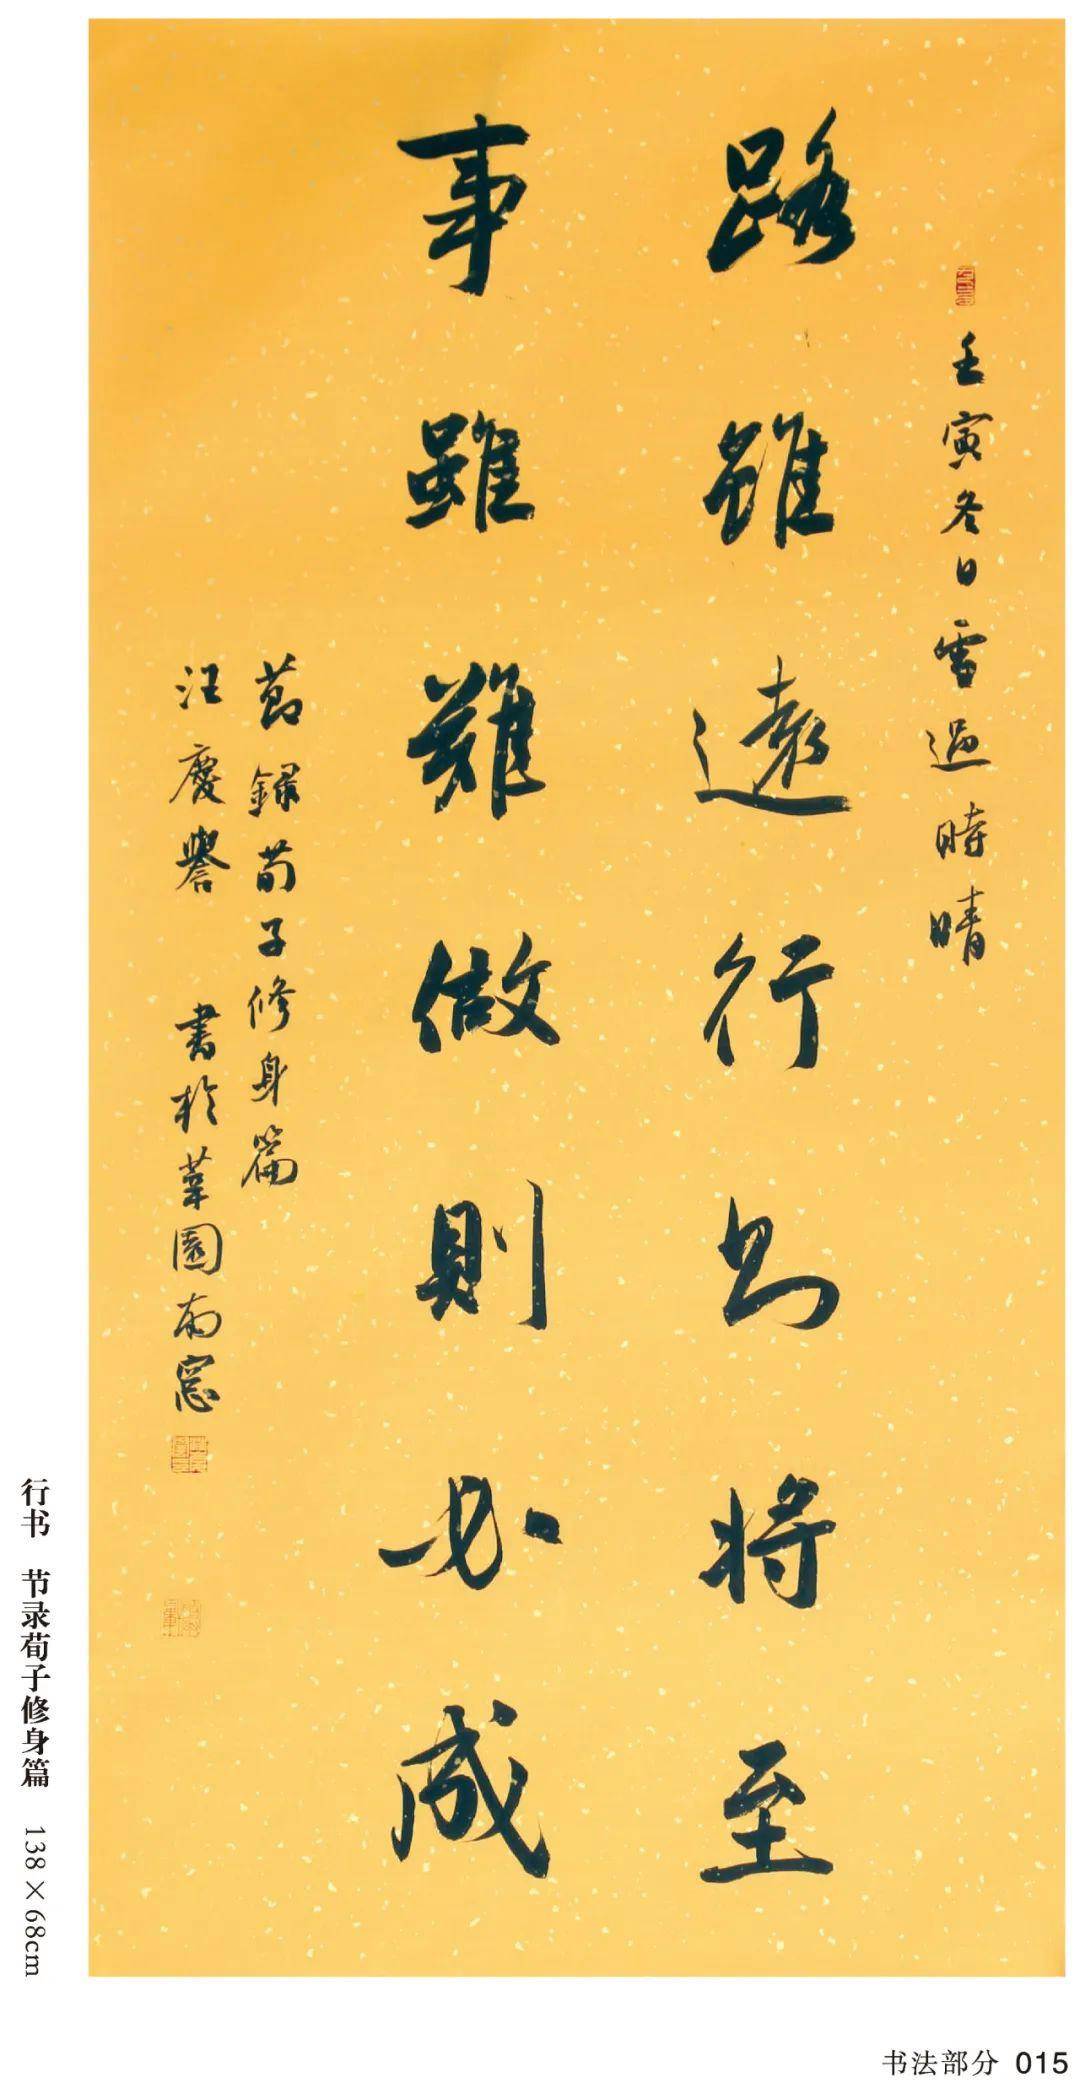 壬寅冬日雪過時晴
路雖遠行則將至
事雖難做則必成
節錄荀子修身篇
汪慶譽 書於園南窓
行书 节录荀子修身篇 138×68cm
书法部分 015